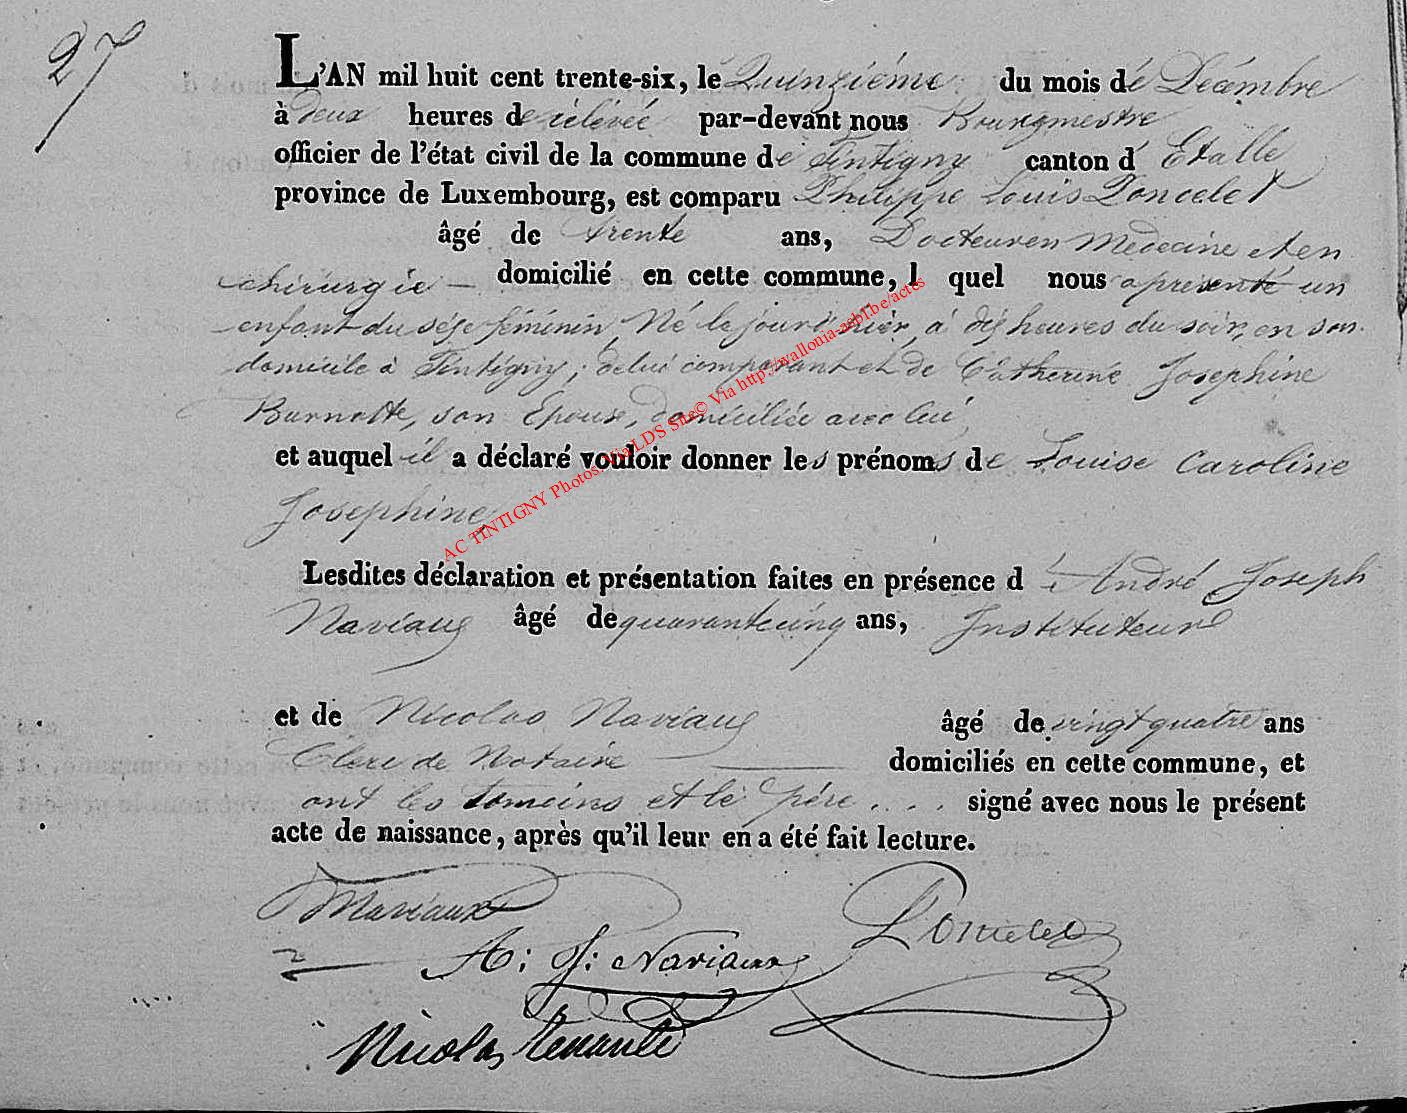 27
L'AN mil huit cent trente-six, le Quinziéme du mois de Decémbre
à deux heures de rélévéé par-devant nous Bourgmestre
officier de l'état civil de la commune de Tintigny canton d' Etalle
province de Luxembourg, est comparu Philippe Louis Poncelet
âgé de trente ans, Docteur en Medecine et en
chirurgie — domicilié en cette commune, l quel nous a présenté un
enfant du séxe féminin, Né le jour d'hièr, à dix heures du soir, en son
domicile à Tintigny, de lui comparant et de Catherine Josephine
Burnotte, son Epouse, domiciliée avec lui,
et auquel il a déclaré vouloir donner les prénoms de Louise Caroline
Josephine
Lesdites déclaration et présentation faites en présence d é André Joseph
Naviaux âgé de quarante cinq ans, Instituteur
et de Nicolas Naviaux âgé de vingt quatre ans
Clerc de Notaire — domiciliés en cette commune, et
ont les temoins et le père . . . . signé avec nous le présent
acte de naissance, après qu'il leur en a été fait lecture.
Naviaux
A: J: Naviaux
Poncelet
Nicolas
AC TINTIGNY Photos, Via LDS Site© Via http://wallonia-asbl.be/actes